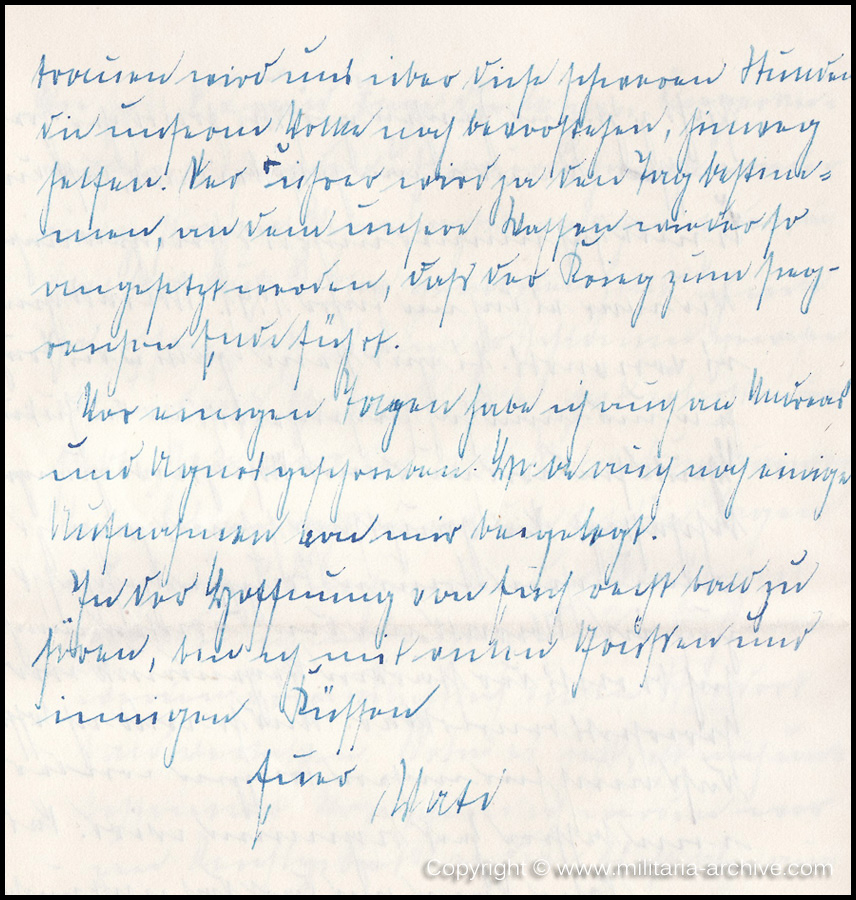 trauen wird uns über diese schweren Stunden
die unserm Volke noch bevorstehen, hinweg
helfen. Der Führer wird ja den Tag bestim=
men, an dem unsere Waffen wieder so
angesetzt werden, daß der Krieg zum sieg-
reichen Ende führt.
Vor einigen Tagen habe ich auch an Andreas
und Agnes geschrieben. Habe auch noch einige
Aufnahmen von mir beigelegt.
In der Hoffnung von Euch recht bald zu
hören, bin ich mit vielen Grüßen und
innigen Küssen
Euer
Copyright © www.militaria-archive.com